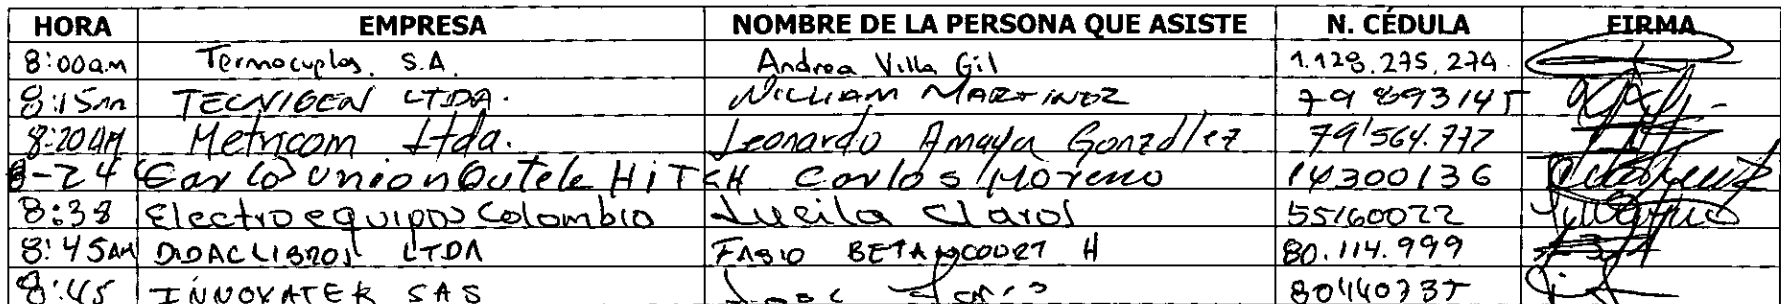 HORA EMPRESA NOMBRE DE LA PERSONA QUE ASISTE N. CÉDULA FIRMA
8:00am Termocuplas. S.A. Andrea Villa Gil 1.128.275.274.
8:15am TECNIGEN LTDA. WILLIAM MARTINEZ 79893145
8:20AM Metricom Ltda. Leonardo Amaya González 79'564.777
8-24 union Carlos Moreno 14300136
8:38 Electroequipos Colombia Lucila Claros 55160022
8:45AM DIDACLIBROS LTDA FABIO BETANCOURT H 80.114.999
8:45 INNOVATEK SAS Jose